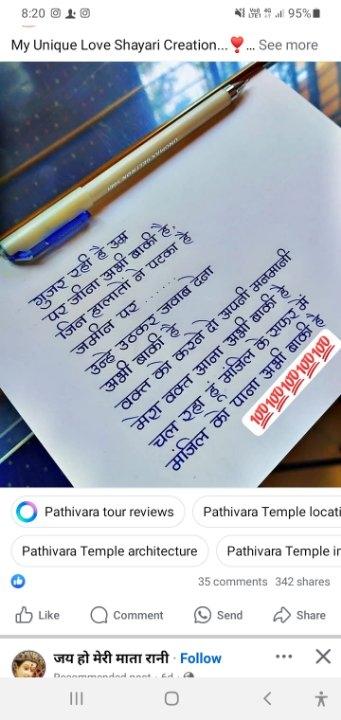 8:20
VoB
LTE1
4G
95%
My Unique Love Shayari Creation...❣️... See more
गुजर रही है उम्र
पर जीना अभी बाकी है,
जिन हालातों ने पटका
जमीन पर ......
उन्हें उठकर जवाब देना
अभी बाकी है,
वक्त को करने दो अपनी मनमानी
मेरा वक्त आना अभी बाकी है,
चल रहा हूं मंजिल के सफर में
मंजिल को पाना अभी बाकी है
💯💯💯💯💯
Pathivara tour reviews
Pathivara Temple locati
Pathivara Temple architecture
Pathivara Temple ir
35 comments 342 shares
Like Comment Send Share
जय हो मेरी माता रानी · Follow
Recommended post · 6d ·